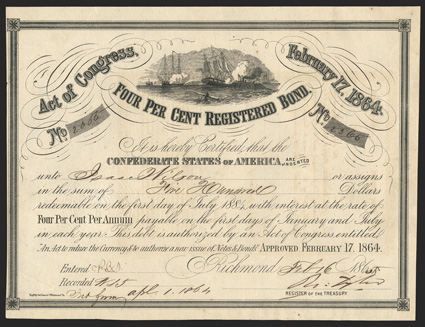 Act of Congress, February 17, 1864.
FOUR PER CENT REGISTERED BOND.
No No
It is hereby Certified, that the
CONFEDERATE STATES OF AMERICA, ARE INDEBTED
unto Isaac Wilson or assigns
in the sum of Five Hundred Dollars
redeemable on the first day of July 188, with interest at the rate of
Four Per Cent Per Annum payable, on the first days of January and July
in each year. This debt is authorized by an Act of Congress entitled
"An Act to reduce the Currency & to authorize a new issue of Notes & Bonds" APPROVED FEBRUARY 17, 1864.
Entered Richmond Feby 186
Recorded
REGISTER OF THE TREASURY
Int from apl. 1. 1864